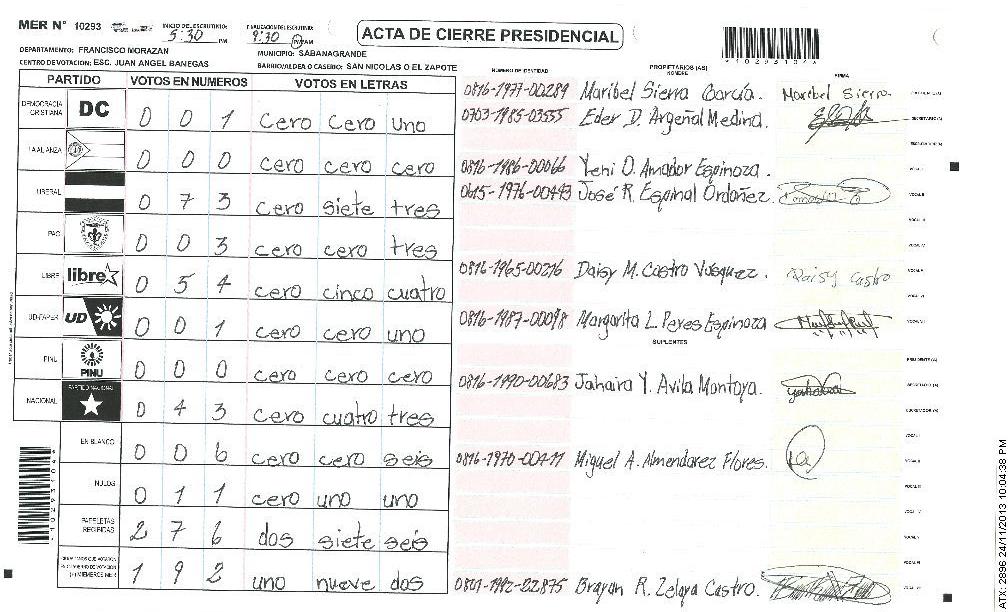 MER N° 10293 INICIO DEL ESCRUTINIO: 5:30 PM FINALIZACION DEL ESCRUTINIO: 9:30 PM AM
ACTA DE CIERRE PRESIDENCIAL
DEPARTAMENTO: FRANCISCO MORAZAN MUNICIPIO: SABANAGRANDE
CENTRO DE VOTACION: ESC. JUAN ANGEL BANEGAS BARRIO/ALDEA O CASERIO: SAN NICOLAS O EL ZAPOTE
*10293104*
PARTIDO VOTOS EN NUMEROS VOTOS EN LETRAS
DEMOCRACIA CRISTIANA DC 0 0 1 cero cero uno
LA ALIANZA 0 0 0 cero cero cero
LIBERAL 0 7 3 cero siete tres
PAC 0 0 3 cero cero tres
LIBRE libre 0 5 4 cero cinco cuatro
UD-FAPER UD 0 0 1 cero cero uno
PINU PINU 0 0 0 cero cero cero
NACIONAL PARTIDO NACIONAL 0 4 3 cero cuatro tres
EN BLANCO 0 0 6 cero cero seis
NULOS 0 1 1 cero uno uno
PAPELETAS RECIBIDAS 2 7 6 dos siete seis
1 9 2 uno nueve dos
*10293104*
NÚMERO DE IDENTIDAD PROPIETARIOS (AS) NOMBRE FIRMA
0816-1977-00289 Maribel Sierra García. Maribel Sierra
0703-1985-03555 Eder D. Argeñal Medina. SECRETARIO(A)
0816-1986-00066 Yeni O. Amador Espinoza.
0615-1976-00493 José R. Espinal Ordoñez.
0816-1965-00216 Daisy M. Castro Vasquez. Daisy Castro
0816-1987-00098 Margarita L. Peres Espinoza
SUPLENTES
PRESIDENTE (A)
0816-1990-00683 Jahaira Y. Avila Montoya.
0816-1970-00411 Miguel A. Almendarez Flores.
0801-1982-22875 Brayan R. Zelaya Castro.
ATX- 2896 24/11/2013 10:04:38 PM